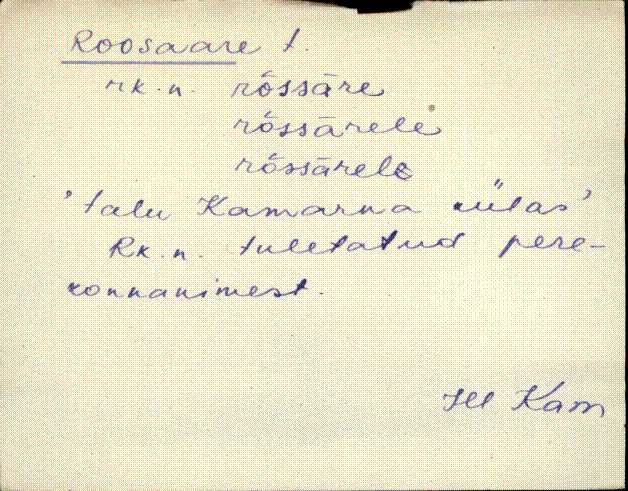 Roosaare t.
rk.n. rōssāre
rōssārele
rōssārele
'talu Kamarna külas'
Rk.n. tuletatud pere-
konnanimest.
Kam